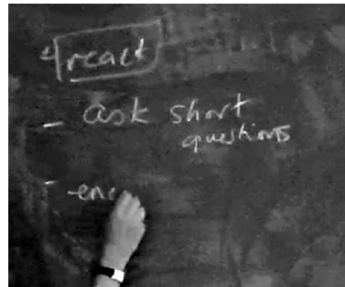 4 react
- ask short
questions
- enc